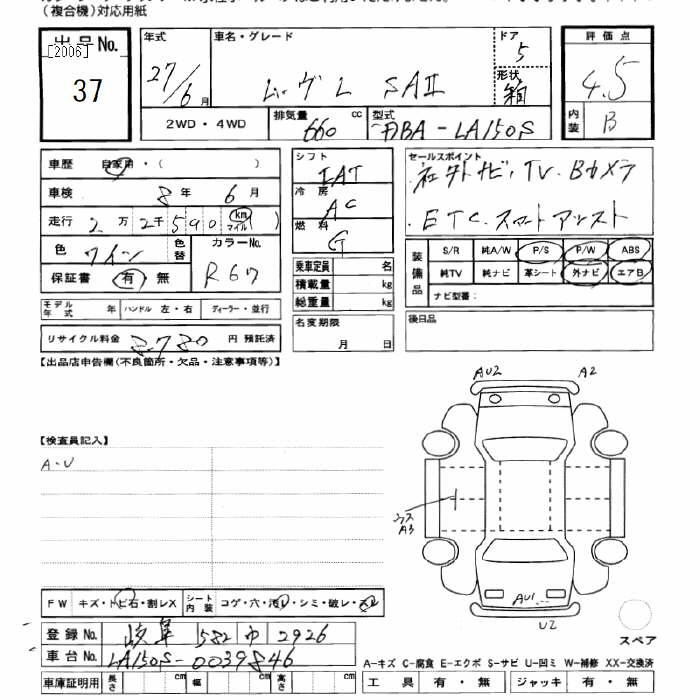 （複合機）対応用紙
出品No.
[2006]
37
年式
27/6月
車名・グレード
ムーヴL SAⅡ
ドア
5
形状
箱
評価点
4.5
内装
B
2WD・4WD
排気量
660 cc
型式
DBA-LA150S
車歴 自家用・( )
車検 8年 6月
走行 2万2千590 km マイル ( )
色 ワイン
色替
カラーNo.
R67
保証書 有・無
シフト
IAT
冷房
AC
燃料
G
乗車定員 名
積載量 kg
総重量 kg
名変期限
月 日
セールスポイント
社外ナビ・TV・Bカメラ
ETC・スマートアシスト
装備品
S/R 純A/W P/S P/W ABS
純TV 純ナビ 革シート 外ナビ エアB
ナビ型番:
後日品
モデル年式 年 ハンドル 左・右 ディーラー・並行
リサイクル料金 8780 円 預託済
【出品店申告欄(不良箇所・欠品・注意事項等)】
【検査員記入】
A・U
AU2
A2
A3
AU1
U2
FW キズ・トビ石・割レX
シート内装 コゲ・穴・汚レ・シミ・破レ・スレ
登録No. 岐阜 582 2926
車台No. LA150S-0039846
スペア
A-キズ C-腐食 E-エクボ S-サビ U-凹ミ W-補修 XX-交換済
車庫証明用 長さ cm 幅 cm 高さ cm
工具 有・無 ジャッキ 有・無